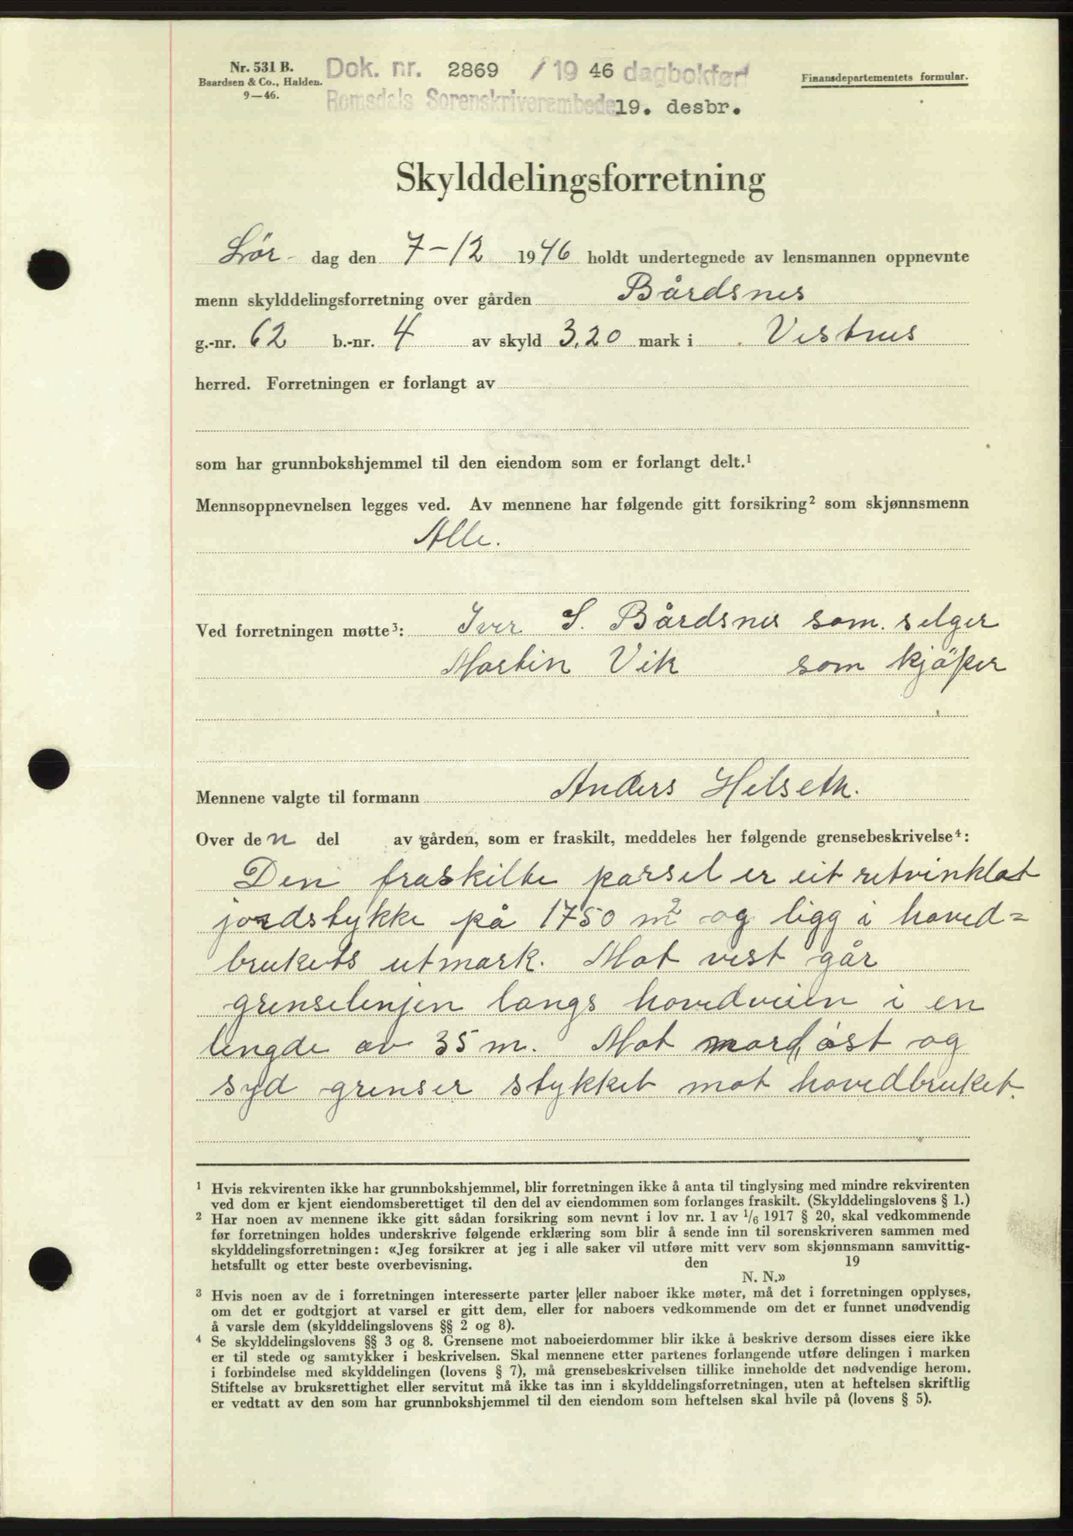 Nr. 531 B.
Baardsen & Co., Halden.
9—46.
Dok. nr. 2869 / 1946 dagbokført
Romsdals Sorenskriverembede 19. desbr.
Finansdepartementets formular.
Skylddelingsforretning
Lør- dag den 7-12 1946 holdt undertegnede av lensmannen oppnevnte
menn skylddelingsforretning over gården Bårdsnes
g.-nr. 62 b.-nr. 4 av skyld 3,20 mark i Vestnes
herred. Forretningen er forlangt av
som har grunnbokshjemmel til den eiendom som er forlangt delt.¹
Mennsoppnevnelsen legges ved. Av mennene har følgende gitt forsikring² som skjønnsmenn
Alle.
Ved forretningen møtte³: Iver S. Bårdsnes som selger
Martin Vik som kjöper
Mennene valgte til formann Anders Helseth.
Over den del av gården, som er fraskilt, meddeles her følgende grensebeskrivelse⁴:
Den fraskilte parsel er eit retvinklat
jordstykke på 1750 m² og ligg i hoved=
brukets utmark. Mot vest går
grenselinjen langs hovedveien i en
lengde av 35 m. Mot nord, øst og
syd grenser stykket mot hovedbruket.
¹ Hvis rekvirenten ikke har grunnbokshjemmel, blir forretningen ikke å anta til tinglysing med mindre rekvirenten
ved dom er kjent eiendomsberettiget til den del av eiendommen som forlanges fraskilt. (Skylddelingslovens § 1.)
² Har noen av mennene ikke gitt sådan forsikring som nevnt i lov nr. 1 av ¹/₆ 1917 § 20, skal vedkommende
før forretningen holdes underskrive følgende erklæring som blir å sende inn til sorenskriveren sammen med
skylddelingsforretningen: «Jeg forsikrer at jeg i alle saker vil utføre mitt verv som skjønnsmann samvittig-
hetsfullt og etter beste overbevisning. den 19
N. N.»
³ Hvis noen av de i forretningen interesserte parter eller naboer ikke møter, må det i forretningen opplyses,
om det er godtgjort at varsel er gitt dem, eller for naboers vedkommende om det er funnet unødvendig
å varsle dem (skylddelingslovens §§ 2 og 8).
⁴ Se skylddelingslovens §§ 3 og 8. Grensene mot naboeierdommer blir ikke å beskrive dersom disses eiere ikke
er til stede og samtykker i beskrivelsen. Skal mennene etter partenes forlangende utføre delingen i marken
i forbindelse med skylddelingen (lovens § 7), må grensebeskrivelsen tillike inneholde det nødvendige herom.
Stiftelse av bruksrettighet eller servitut må ikke tas inn i skylddelingsforretningen, uten at heftelsen skriftlig
er vedtatt av den som har grunnbokshjemmel til den eiendom som heftelsen skal hvile på (lovens § 5).